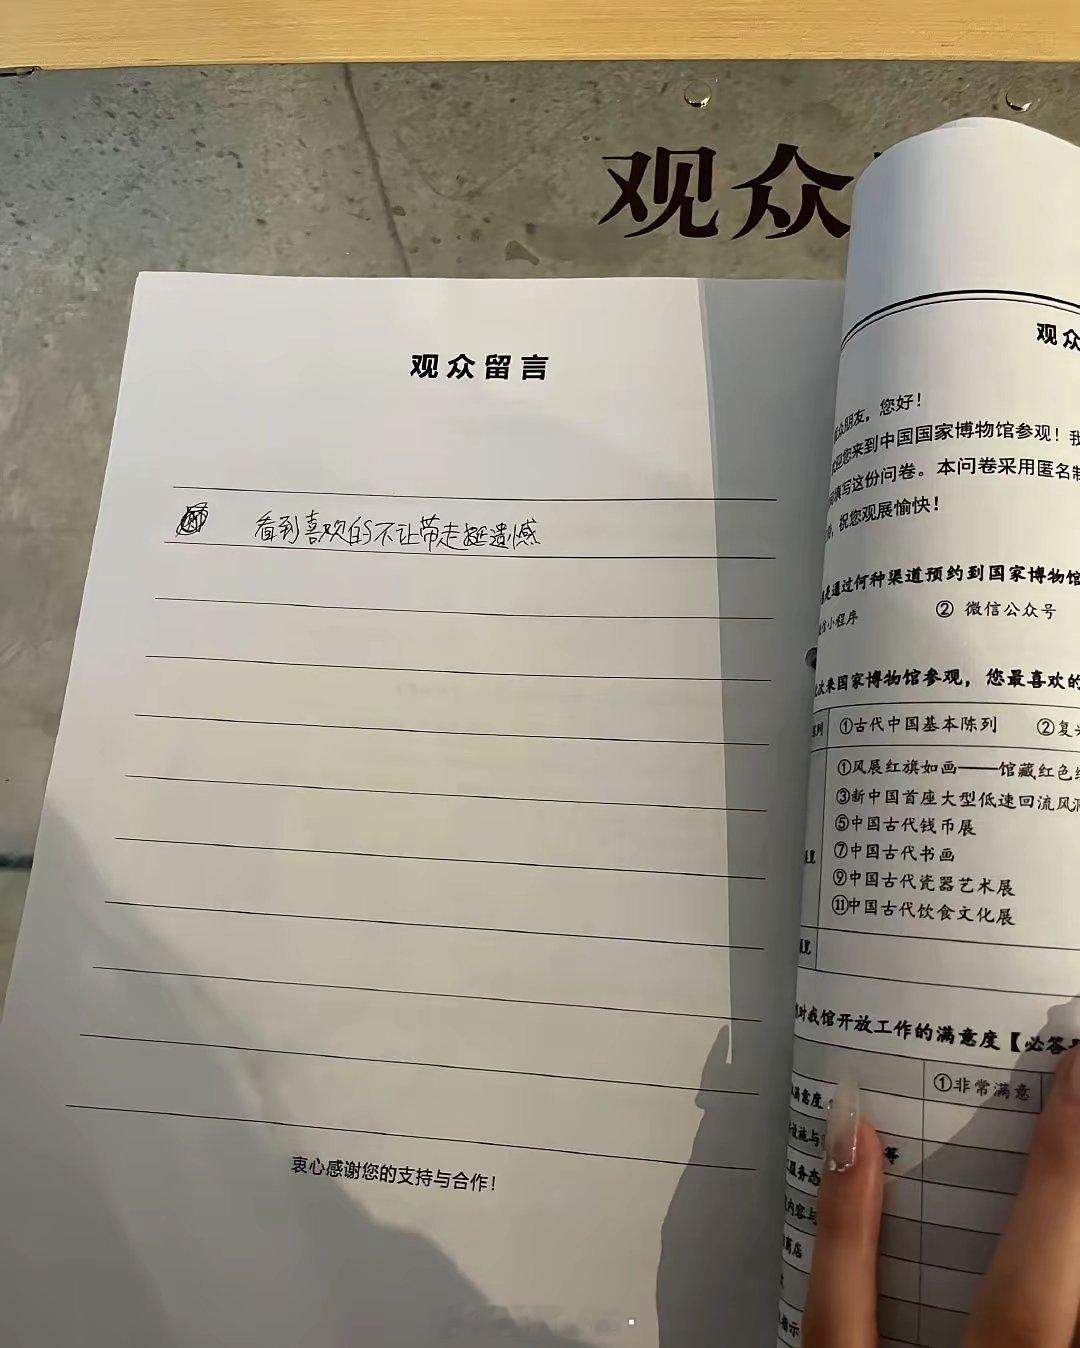 观众
观众留言
看到喜欢的不让带走挺遗憾
衷心感谢您的支持与合作！
观众
朋友，您好！
您来到中国国家博物馆参观！我
填写这份问卷。本问卷采用匿名
祝您观展愉快！
通过何种渠道预约到国家博物馆
小程序 ② 微信公众号
次来国家博物馆参观，您最喜欢的
列 ①古代中国基本陈列 ②复
①风展红旗如画——馆藏红色
③新中国首座大型低速回流风
⑤中国古代钱币展
⑦中国古代书画
⑨中国古代瓷器艺术展
⑪中国古代饮食文化展
对我馆开放工作的满意度【必答
①非常满意
满意度
设施与 等
服务态
内容与
商店
指示